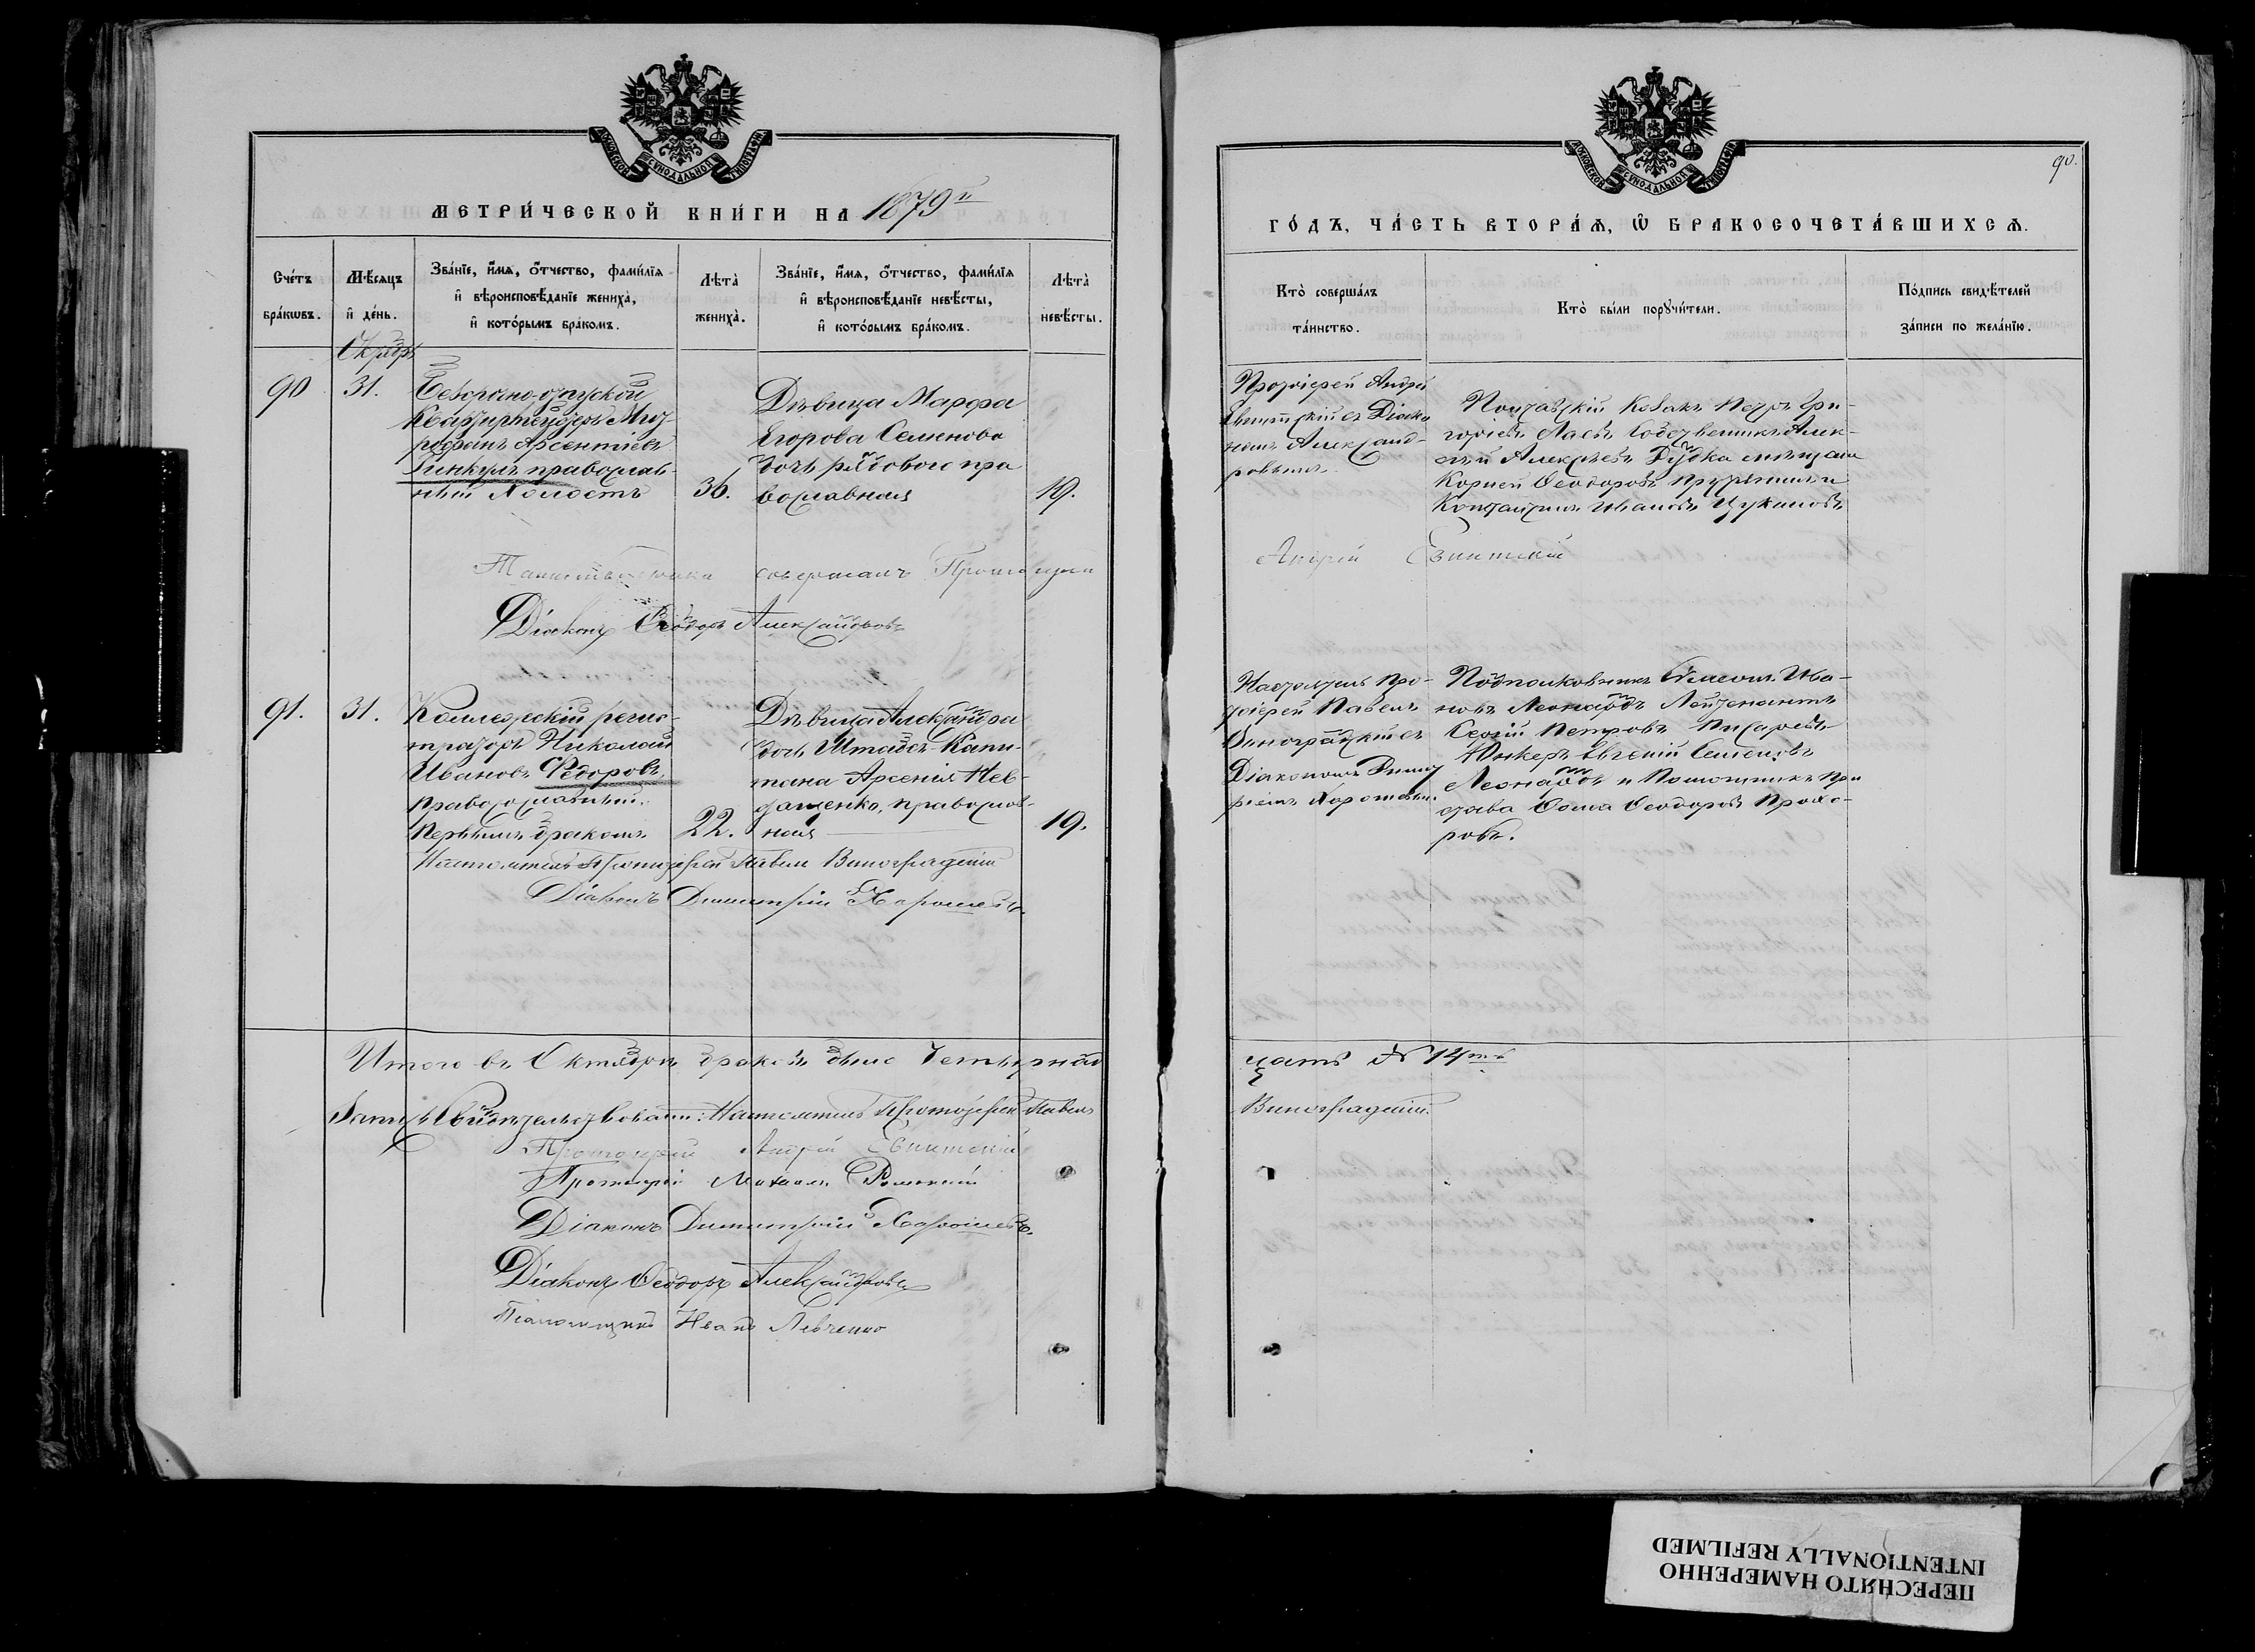 МОСКОВСКОЙ СѴНОДАЛЬНОЙ ТИПОГРАФІИ
МЕТРИ́ЧЕСКОЙ КНИ́ГИ НА 1879й
Сче́тъ бра́кωвъ.
Мѣ́сяцъ и҆ де́нь.
Зва́нїе, и҆́мѧ, ѻ҆́тчество, фами́лїѧ
и҆ вѣроисповѣ́данїе жениха̀,
и҆ кото́рымъ бра́комъ.
Лѣта̀ жениха̀.
Зва́нїе, и҆́мѧ, ѻ҆́тчество, фами́лїѧ
и҆ вѣроисповѣ́данїе невѣ́сты,
и҆ кото́рымъ бра́комъ.
Лѣта̀ невѣ́сты.
90
31.
Безсрочно-отпускной
Арсентіевъ
православ-
ный Холостъ
36.
Дѣвица Марфа
Егорова Семенова
дочь рядового пра
вославная
19.
Таинство брака совершалъ Протоіерей
Діаконъ Ѳеодоръ Александровъ
91.
31.
Коллежскій регис-
траторъ Николай
Ивановъ Ѳедоровъ,
православный.
первымъ бракомъ
22.
Дѣвица Александра
дочь Штабсъ-Капи-
тана Арсенія Нев-
дащенко, православ-
ная
19.
Настоятель Протоіерей Павелъ Виноградскій
Діаконъ Димитрій Хорошевъ.
Итого въ Октябрѣ браковъ было четырнад
Свидѣтельствовали: Настоятель Протоіерей Павелъ
Протоіерей Андрей
Протоіерей Михаилъ
Діаконъ Димитрій Хорошевъ.
Діаконъ Ѳеодоръ Александровъ
Псаломщикъ Иванъ Левченко
МОСКОВСКОЙ СѴНОДАЛЬНОЙ ТИПОГРАФІИ
90.
ГО́ДЪ, ЧА́СТЬ ВТОРА́Ѧ, Ѽ БРАКОСОЧЕТА́ВШИХСѦ.
Кто̀ соверша́лъ
та́инство.
Кто̀ бы́ли порꙋчи́тели.
По́дпись свидѣ́телей
за́писи по жела́нїю.
Протоіерей Андрей
съ Діако
номъ Александ-
ровымъ
Козакъ Петръ Гри-
горіевъ
Алексѣевъ мѣщане
Корней Ѳеодоровъ
Константинъ Ивановъ Цукановъ
Андрей
Настоятель Про-
тоіерей Павелъ
Виноградскій съ
Діакономъ Димит
ріемъ Хорошевымъ
Подполковникъ Ива-
новъ Леонардъ Лейтенантъ
Сергій Петровъ Писаревъ
Юнкеръ Евгеній Семеновъ
Леонардъ и Помощникъ При
става Ѳома Ѳеодоровъ Прохо-
ровъ.
цать № 14ть
Виноградскій.
ПЕРЕСНЯТО НАМЕРЕННО
INTENTIONALLY REFILMED